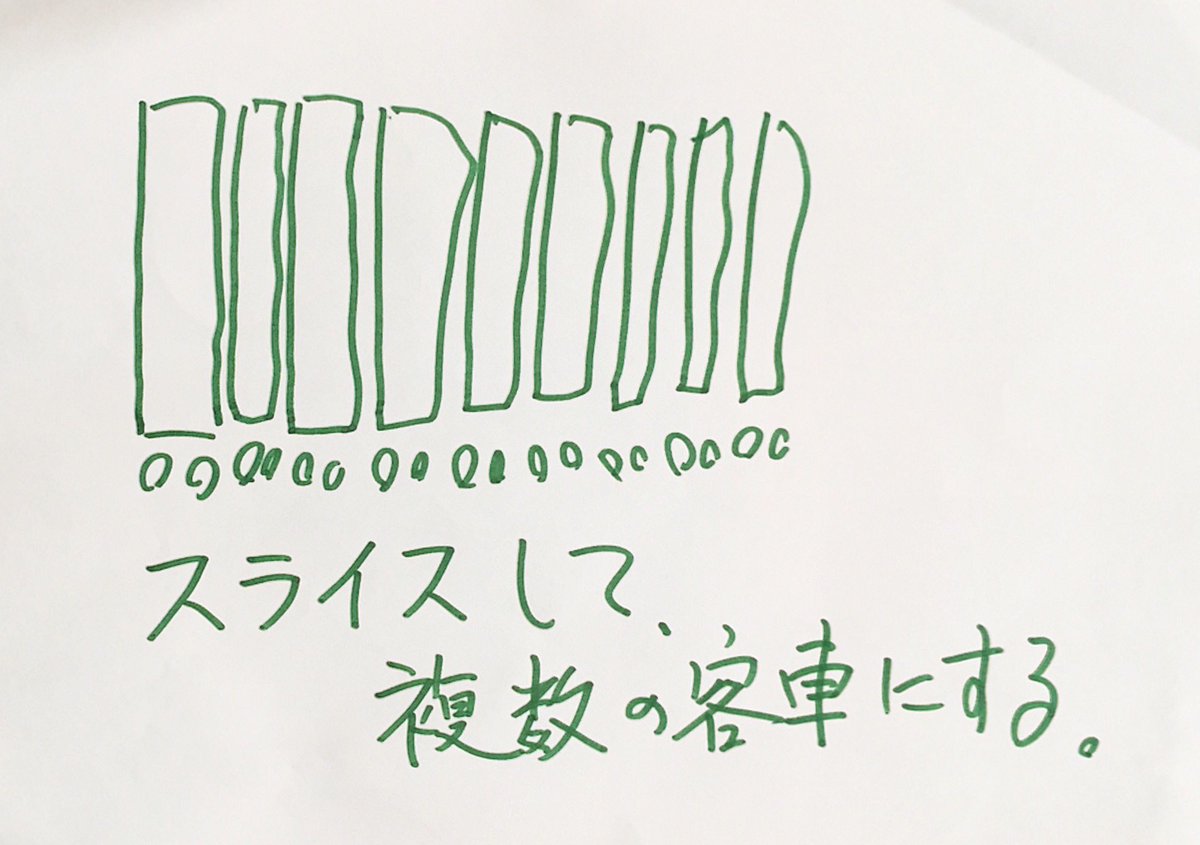 スライスして、
複数の客車にする。